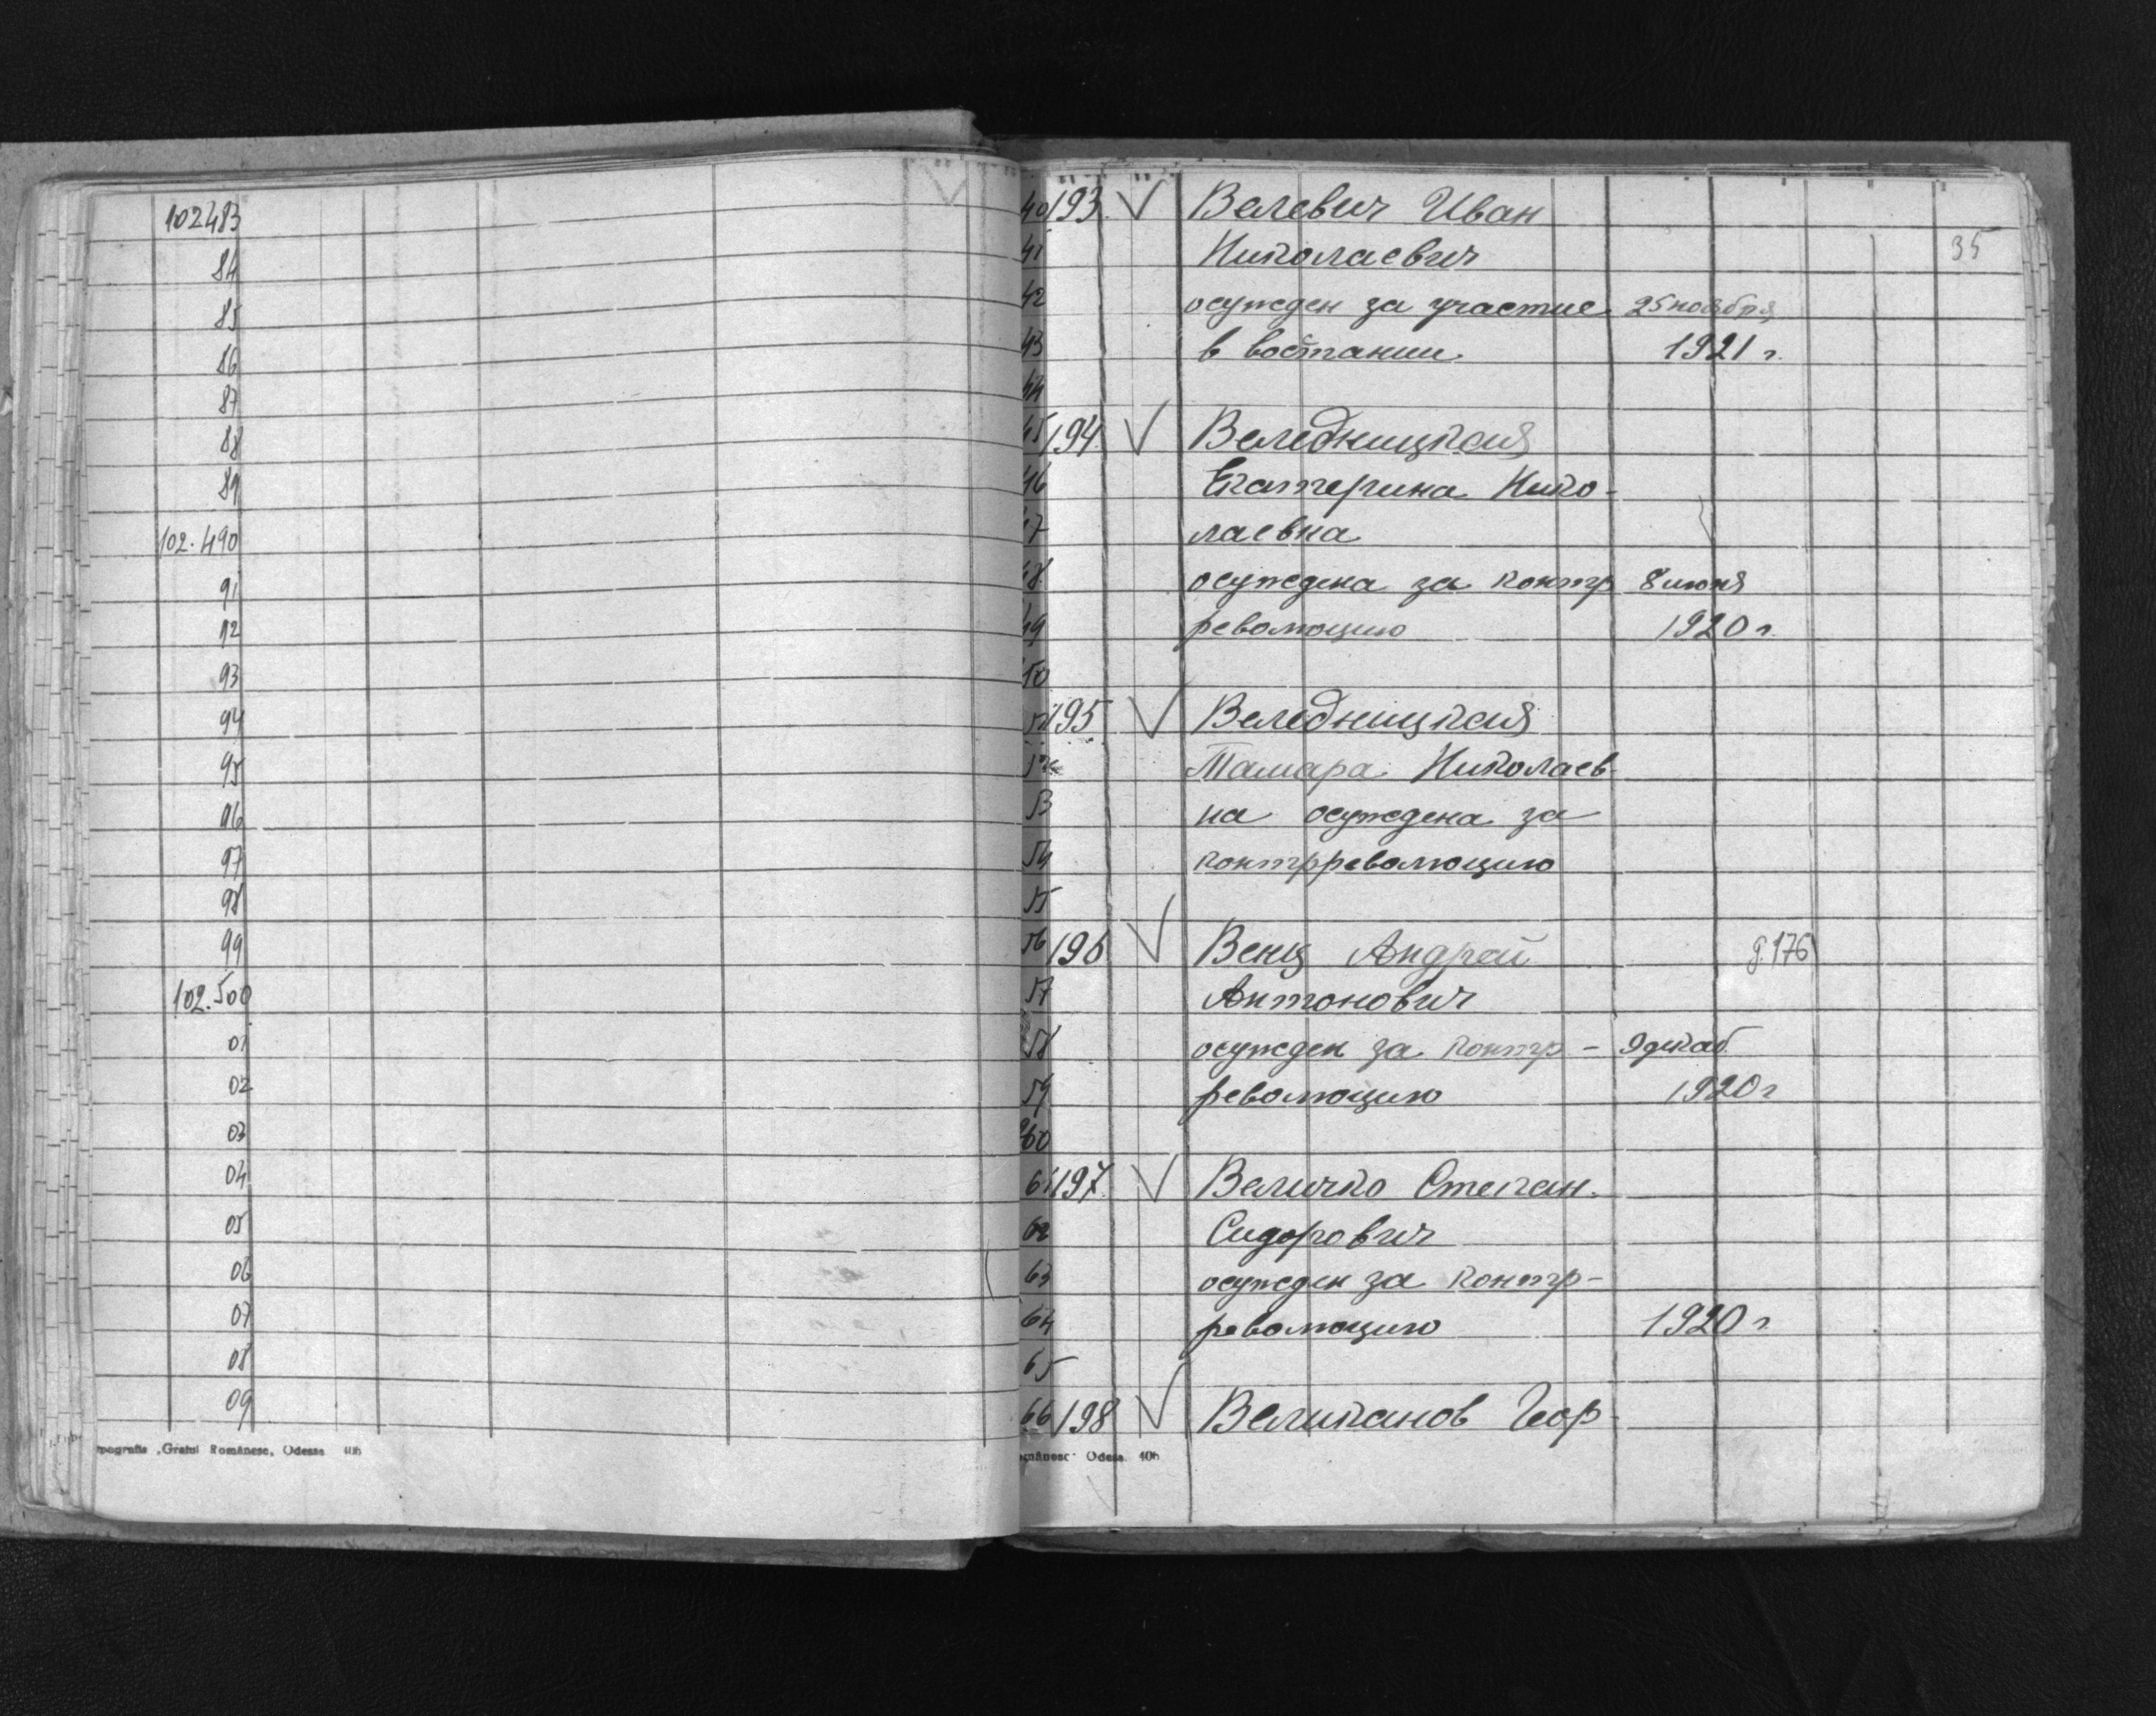 102483
84
85
86
87
88
89
102.490
91
92
93
94
95
96
97
98
99
102.500
01
02
03
04
05
06
07
08
09
Gratul Românesc, Odessa 406
35
40 193 Велевич Иван
41 Николаевич
42 осужден за участие 25 ноября
43 в востании. 1921 г.
44
45 194. Веледницкая
46 Екатерина Нико-
47 лаевна
48 осуждена за контр 8 июня
49 революцию 1920 г.
50
51 195 Веледницкая
52 Тамара Николаев-
53 на осуждена за
54 контрреволюцию
55
56 196 Венц Андрей 176
57 Антонович
58 осужден за контр- 9 декаб.
59 революцию 1920 г
60
61 197. Величко Степан.
62 Сидорович
63 осужден за контр-
64 революцию 1920 г.
65
66 198 Великанов Геор-
omânesc Odessa 406